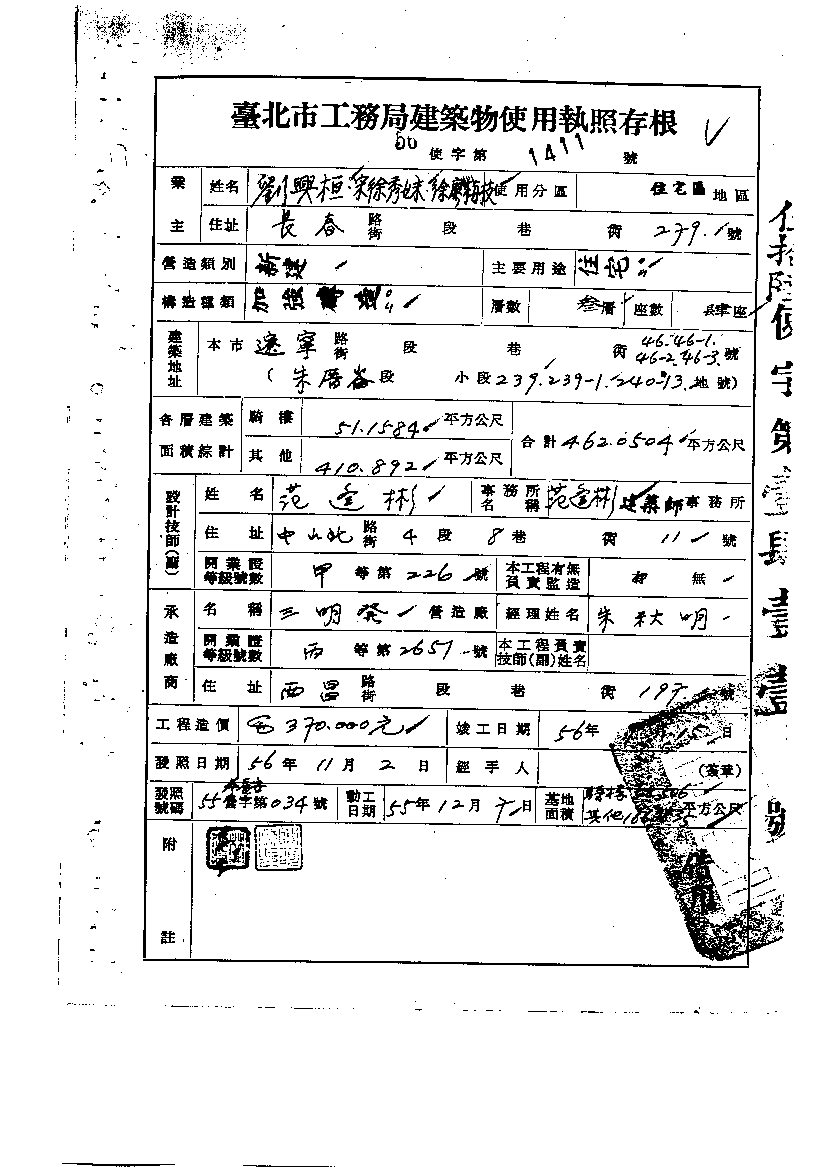 臺北市工務局建築物使用執照存根
56 使字第 1411 號
業主 姓名 劉興桓 徐秀妹 使用分區 住宅區 地區
住址 長春 路街 段 巷 街 239 號
營造類別 新建 主要用途 住宅
構造種類 加強磚造 層數 叁層 座數 肆座
建築地址 本市 遼寧 路街 段 巷 街 46.46-1. 46-2.46-3. 號
(朱厝崙段 小段 239.239-1.240-13 地號)
各層建築面積綜計 騎樓 51.1584 平方公尺 合計 462.0504 平方公尺
其他 410.892 平方公尺
設計技師(副) 姓名 范逢彬 事務所名稱 范逢彬建築師事務所
住址 中山北 路街 4 段 8 巷 街 11 號
開業證等級號數 甲 等第 226 號 本工程有無負責監造 無
承造廠商 名稱 三明發 營造廠 經理姓名 朱秋明
開業證等級號數 丙 等第 2651 號 本工程負責技師(副)姓名
住址 西昌 路街 段 巷 街 197 號
工程造價 370.000元 竣工日期 56年 15日
發照日期 56年 11月 2日 經手人 (簽章)
發照號碼 55 營字第 034 號 動工日期 55年 12月 7日 基地面積 騎樓 其他 平方公尺
附註
伍拾陸使字第壹肆壹壹號